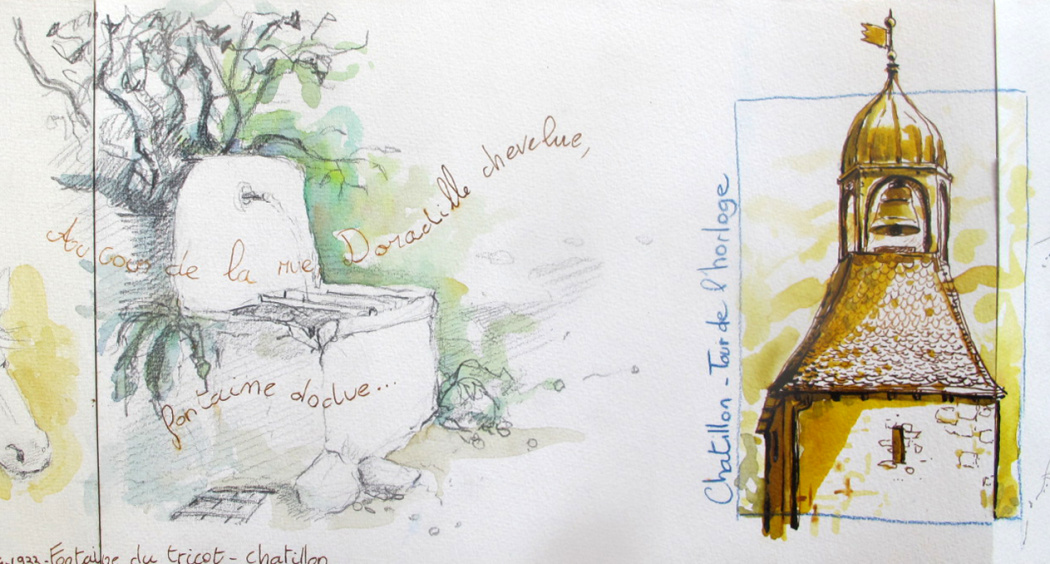 Au cour de la rue, Doradille chevelue,
fontaine dodue...
Chatillon - Tour de l'horloge
1922 - Fontaine du tricot - chatillon